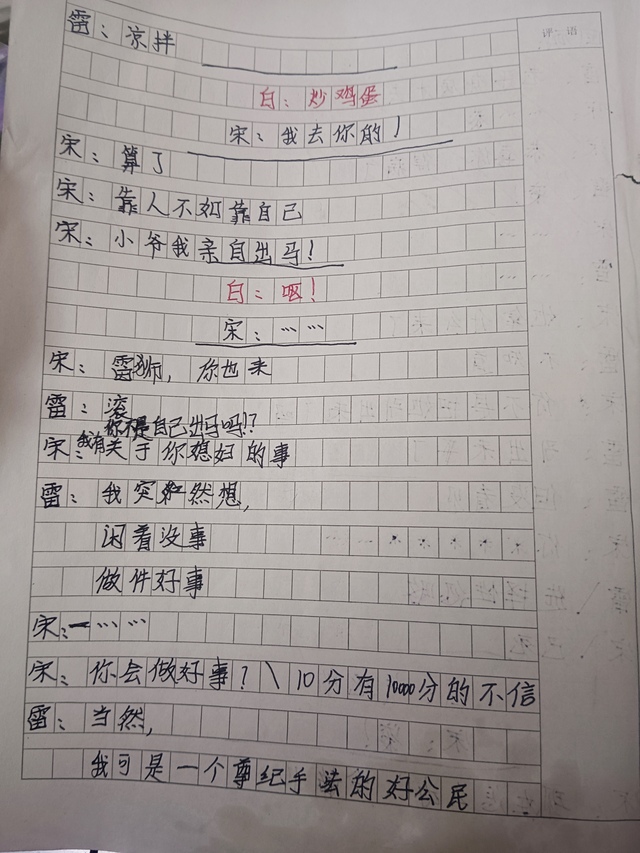 评语
雷：凉拌
白：炒鸡蛋
宋：我去你的！
宋：算了
宋：靠人不如靠自己
宋：小爷我亲自出马！
白：呕！
宋：……
宋：雷狮，你也来
雷：滚
你不是自己出马吗!?
宋：我有关于你媳妇的事
雷：我突然想，
闲着没事
做件好事
宋：……
宋：你会做好事？\10分有1000分的不信
雷：当然，
我可是一个尊纪手法的好公民